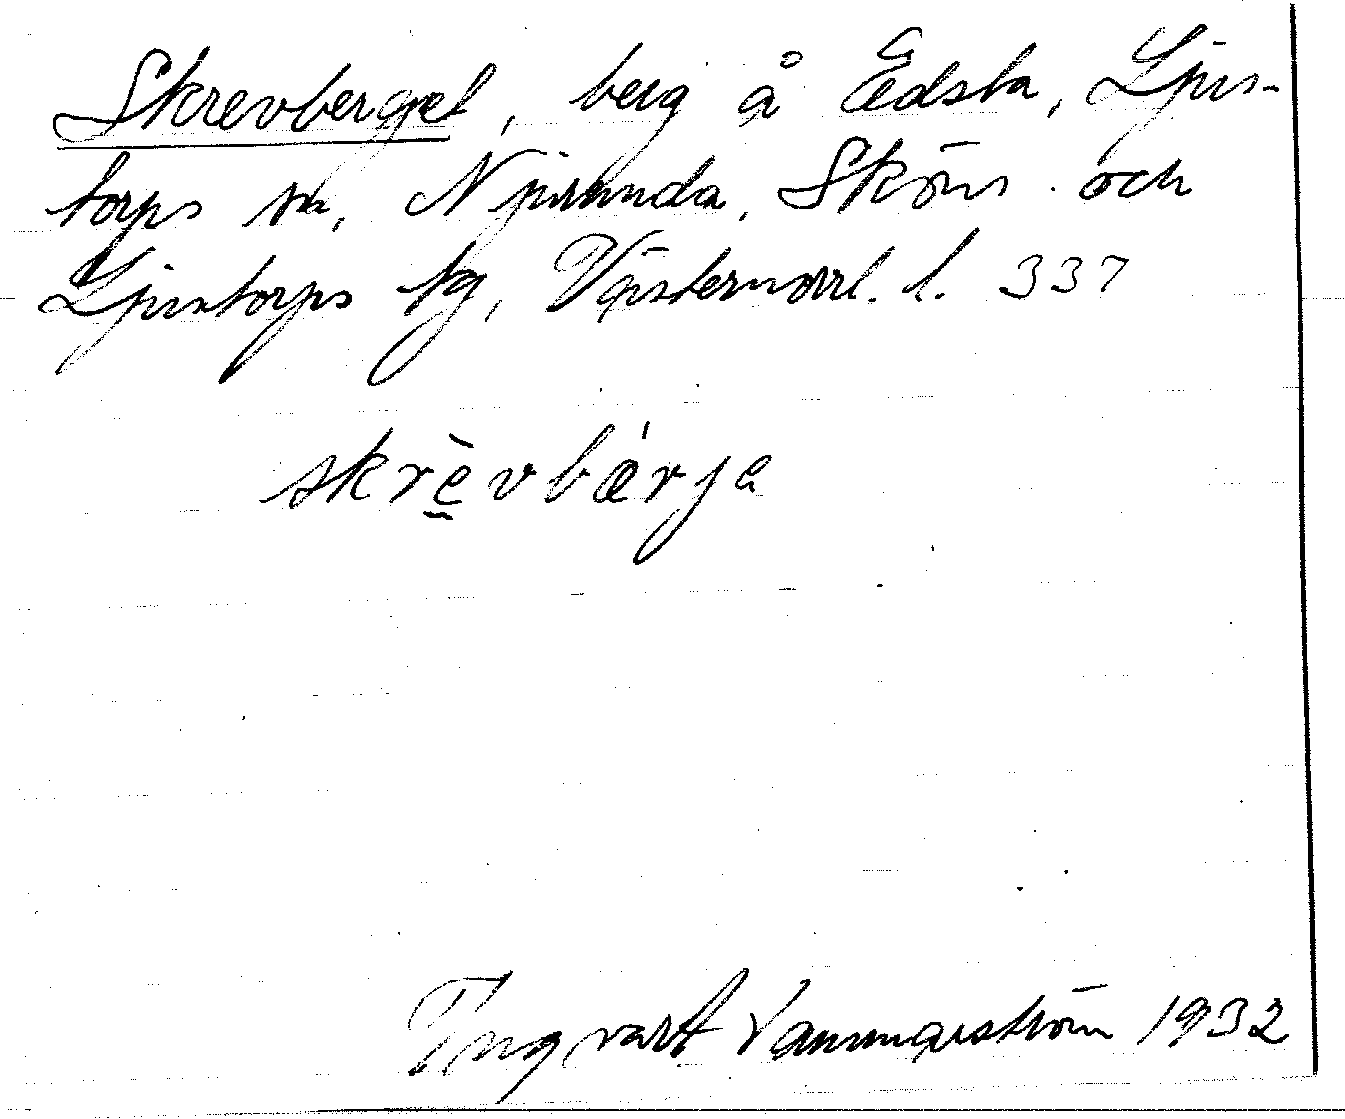 Skrevberget, berg å Edsta, Ljus-
torps sn, Njurunda, Sköns och
Ljustorps tg, Västernorrl. l. 337
skrèvbárja
Ingvart 1932